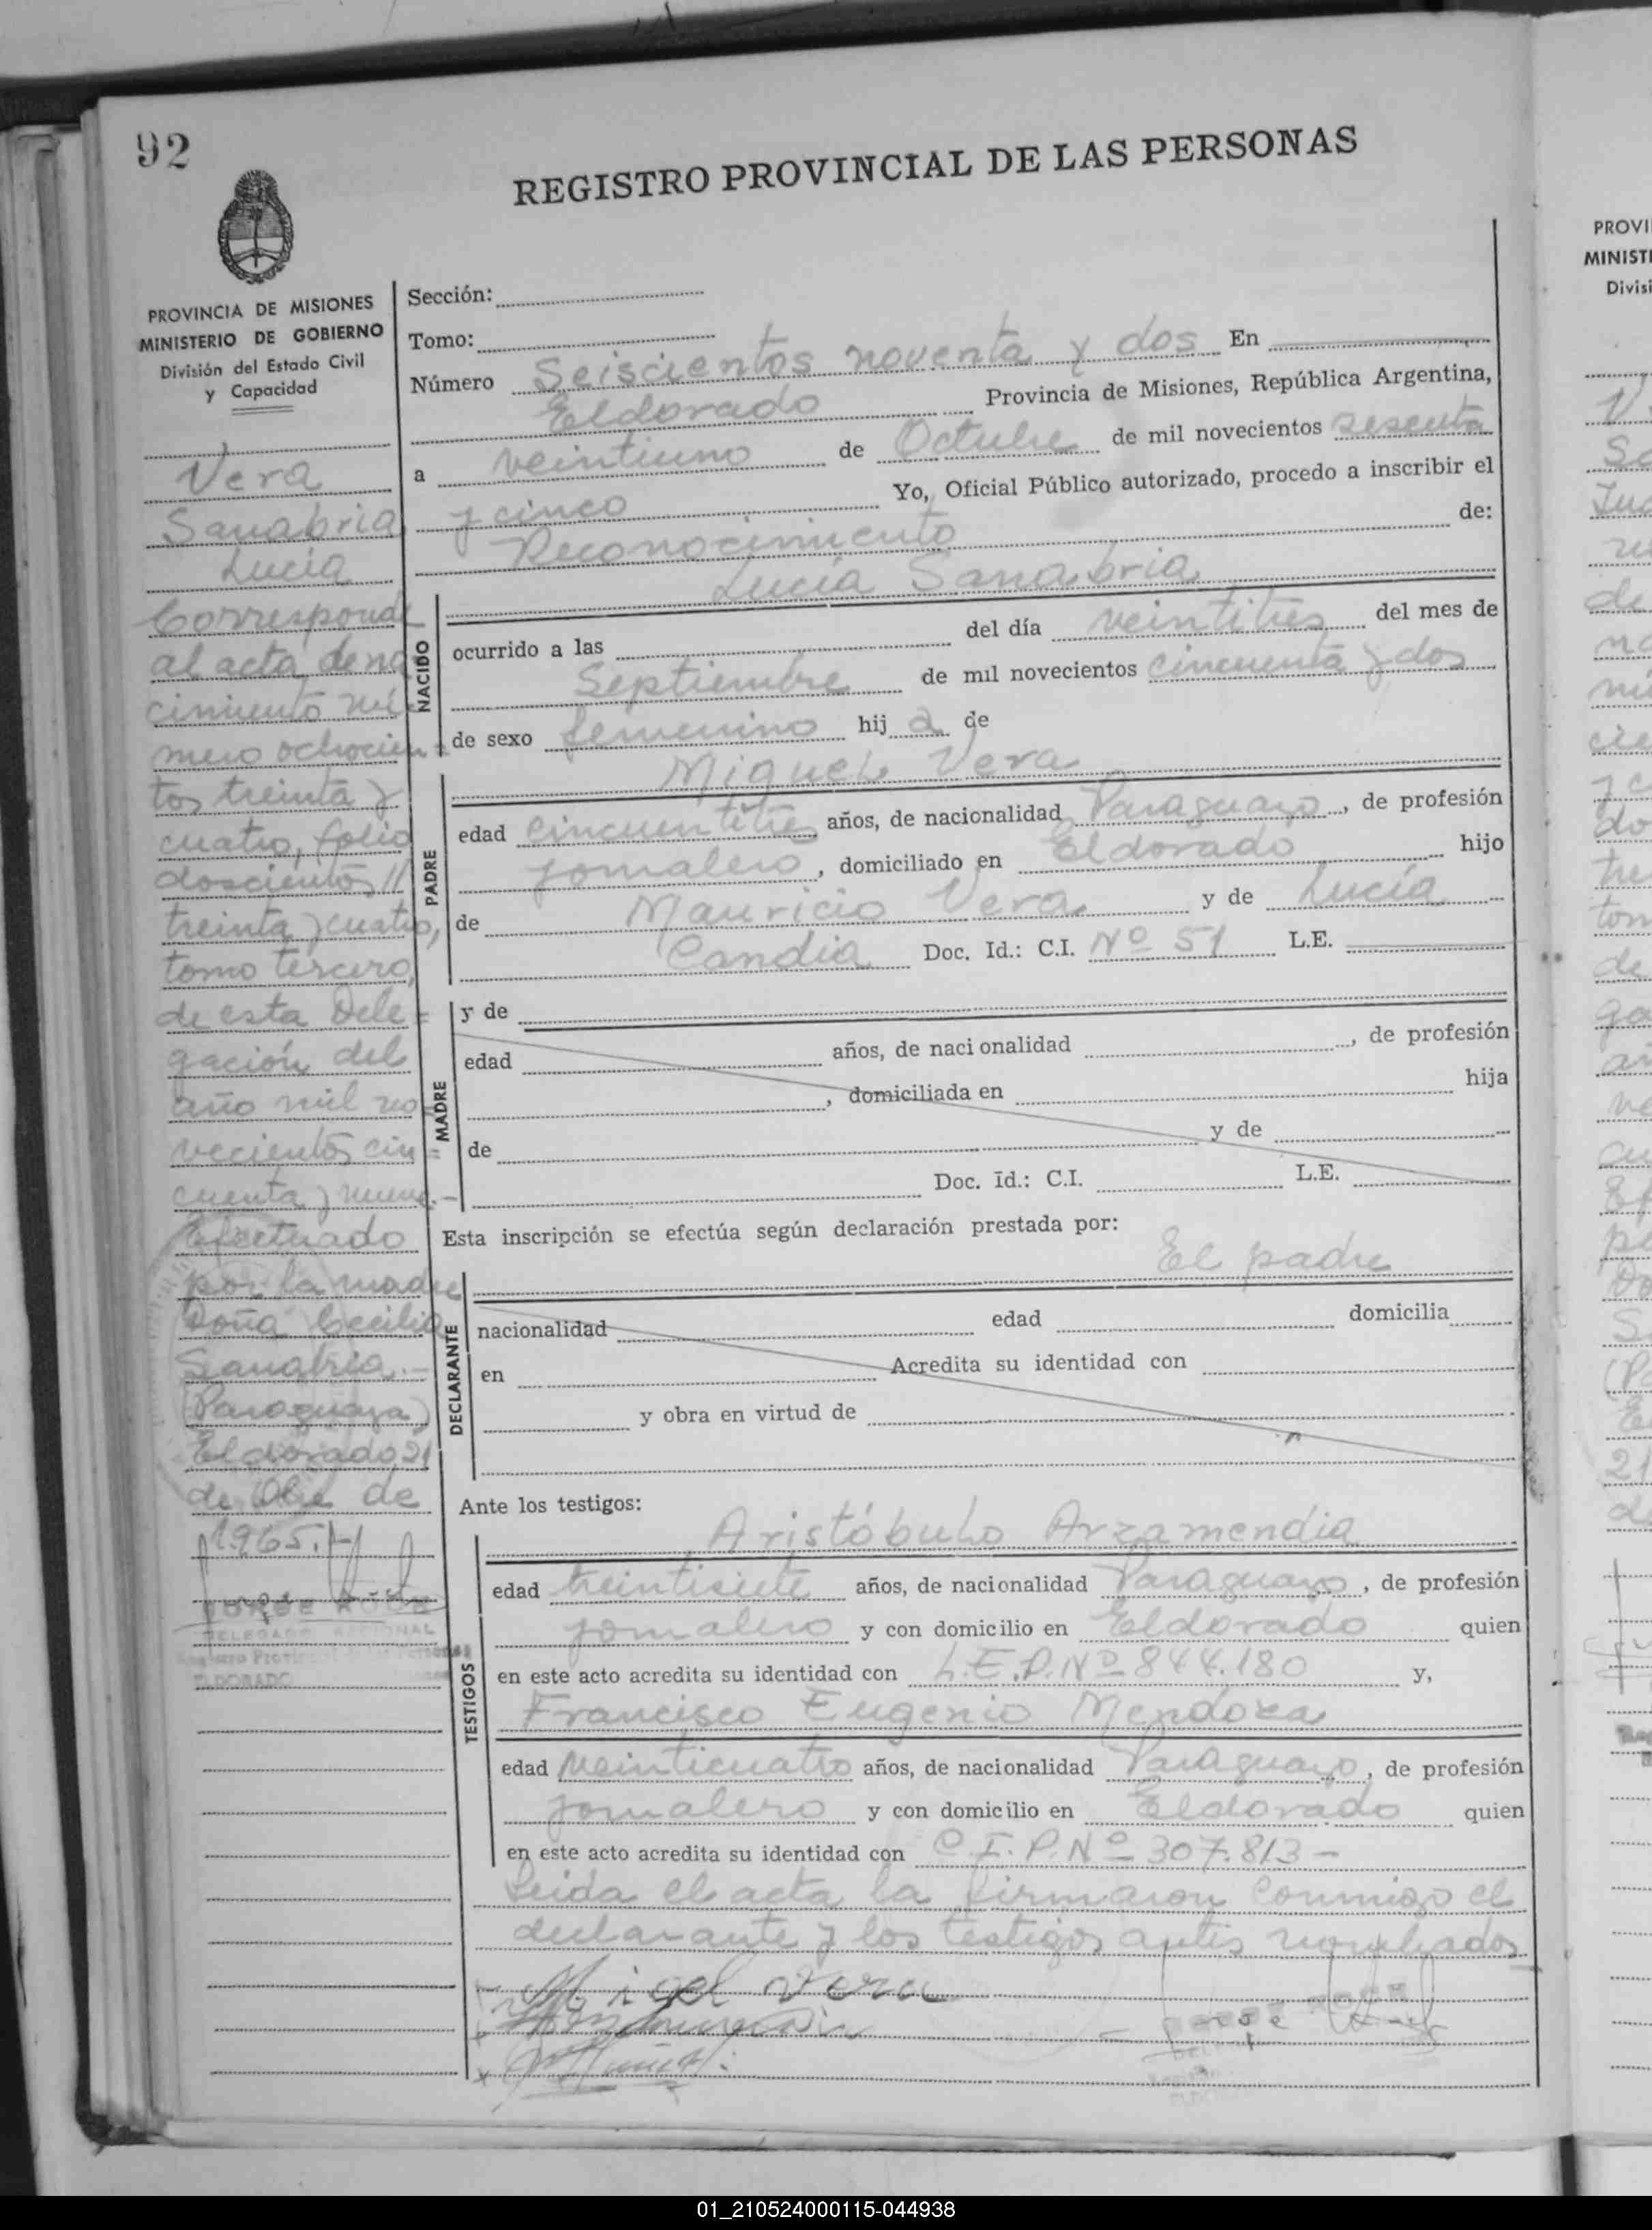 92
REGISTRO PROVINCIAL DE LAS PERSONAS
PROVINCIA DE MISIONES
MINISTERIO DE GOBIERNO
División del Estado Civil
y Capacidad
Vera
Sanabria
Lucia
Corresponde
al acta de na
cimiento nú
mero ochocien
tos treinta y
cuatro, folio
doscientos //
treinta y cuatro,
tomo tercero,
de esta Dele=
gación del
año mil no=
vecientos cin=
cuenta y nueve.-
Efectuado
por la madre
Doña Cecilia
Sanabria.-
(Paraguaya)
Eldorado 21
de Obre de
1965.
JORGE
DELEGADO REGIONAL
Registro Provincial de las Personas
ELDORADO
Sección:
Tomo:
Número Seiscientos noventa y dos En
Eldorado Provincia de Misiones, República Argentina,
a veintiuno de Octubre de mil novecientos sesenta
y cinco Yo, Oficial Público autorizado, procedo a inscribir el
Reconocimiento de:
Lucía Sanabria
NACIDO
ocurrido a las del día veintitres del mes de
Septiembre de mil novecientos cincuenta y dos
de sexo femenino hij a de
Miguel Vera
PADRE
edad cincuentitres años, de nacionalidad Paraguayo, de profesión
jornalero, domiciliado en Eldorado hijo
de Mauricio Vera y de Lucía
Candia Doc. Id.: C.I. Nº 51 L.E.
MADRE
y de
edad años, de naci onalidad , de profesión
, domiciliada en hija
de y de
Doc. Id.: C.I. L.E.
Esta inscripción se efectúa según declaración prestada por:
El padre
DECLARANTE
nacionalidad edad domicilia
en Acredita su identidad con
y obra en virtud de
Ante los testigos:
Aristóbulo Arzamendia
TESTIGOS
edad treintisiete años, de nacionalidad Paraguayo, de profesión
jornalero y con domicilio en Eldorado quien
en este acto acredita su identidad con L.E.P.Nº 844.180 y,
Francisco Eugenio Mendoza
edad veinticuatro años, de nacionalidad Paraguayo, de profesión
jornalero y con domicilio en Eldorado quien
en este acto acredita su identidad con C.I.P.Nº 307.813 -
Leida el acta la firmaron conmigo el
declarante y los testigos antes nombrados
Migel Vera
PROVI
MINIST
Divisi
01_210524000115-044938